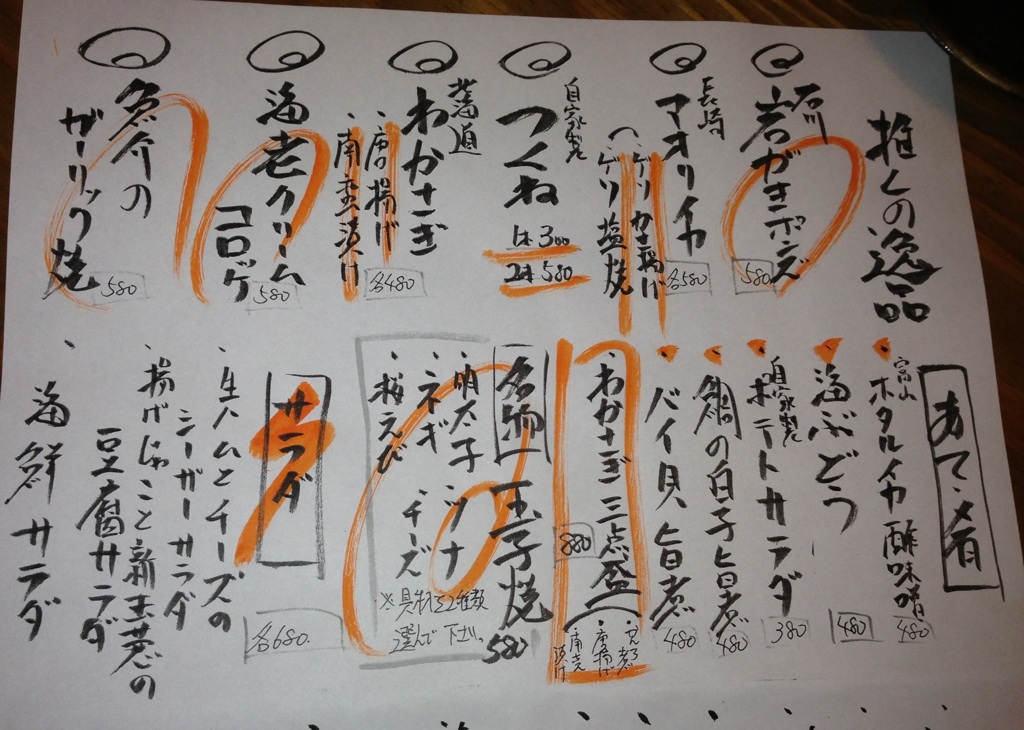 推しの逸品
石川
岩がきポン酢
580
長崎
アオリイカ
ゲソ唐揚げ
ゲソ塩焼
各580
自家製
つくね
1本300
2本580
北海道
わかさぎ
・唐揚げ
・南蛮漬け
各480
海老クリーム
コロッケ
580
魚介の
ガーリック焼
580
あて・肴
・富山
ホタルイカ酢味噌
480
・海ぶどう
480
・自家製
ポテートサラダ
380
・鯛の白子旨煮
480
・バイ貝旨煮
480
・わかさぎ三点盛
・唐揚げ
・南蛮漬け
880
名物 玉子焼
580
・明太子 ・ツナ
・ネギ ・チーズ
・桜えび
※具材を2種類
選んで下さい。
サラダ
・生ハムとチーズの
シーザーサラダ
・揚げじゃこと新玉葱の
豆腐サラダ
・海鮮サラダ
各680.